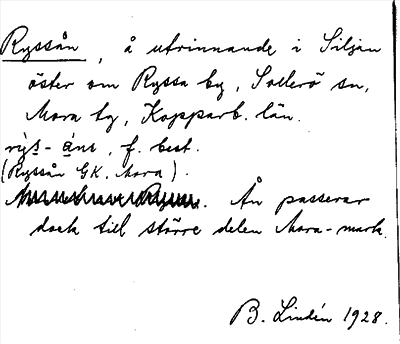 Ryssån, å utrinnande i Siljan
öster om Ryssa by, Sollerö sn,
Mora tg, Kopparb. län.
rys-ăns, f. best.
(Ryssån GK, Mora).
Ån passerar
dock till större delen Mora-mark.
B. Lindén 1928.